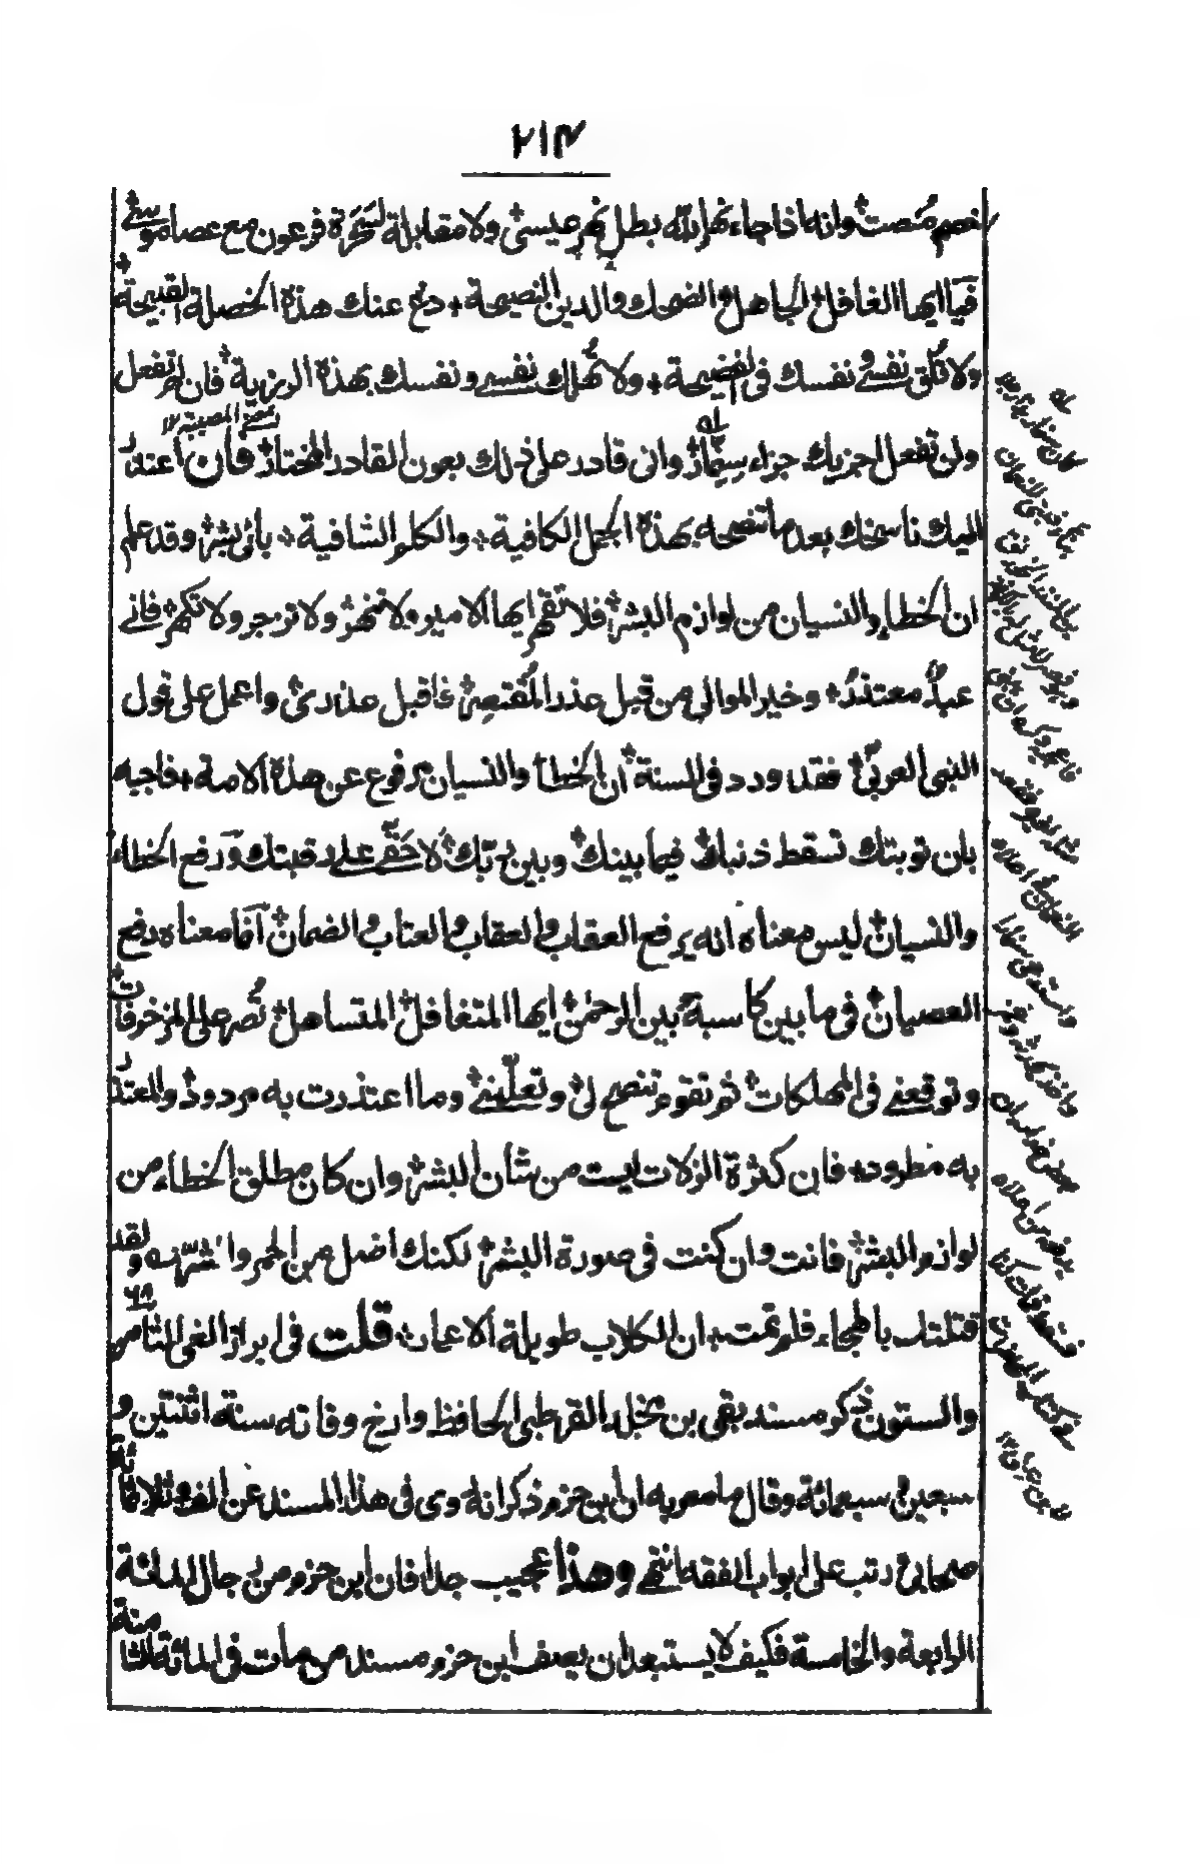 ٢١٣
خصم مُنصت وانه اذا جاء نهر الله بطل نهر عيسى ولا مقابلة لسَحَرَة فرعون مع عصا موسى
فيَا ايها الغافل الجاهل والضحاك والدين النصيحة دع عنك هذه الخصلة القبيحة
ولا تُلق نفسى ونفسك فى الفضيحة ولا تُهلك نفسى ونفسك بهذه الرزية فان لم تفعل
بمعنى المصيبة ١٢
ولن تفعل اجزيك جزاء سِنِمّار وانى قادر على ذلك بعون القادر المختار فان اعتذر
اليك ناسخك بعد ما تنصحه بهذه الجمل الكافية والكلم الشافية بأنى بشر وقد علم
ان الخطاء والنسيان من لوازم البشر فلا تقهر ايها الامير ولا تنهر ولا تزجر ولا تكهر فانى
عبدٌ معتذرٌ وخير الموالى من قبل عذر المُقتصِر فاقبل عذرى واعمل على قول
النبى العربى فقد ورد فى السنة ان الخطأ والنسيان مرفوع عن هذه الامة فاجبه
بان توبتك تسقط ذنبك فيما بينك وبين ربّك لا حَقّى على رقبتك وَرفع الخطاء
والنسيان ليس معناه انه يرفع العقاب والعقاب والعتاب والضمان انما معناه رفع
العصيان فى ما بين كاسبه وبين الرحمن ايها المتغافل المتساهل تُصر على المزخرفات
وتوقعنى فى المهلكات ثم تقوم تنصح لى وتعلّمنى وما اعتذرت به مردود والعتذر
به مطرود فان كثرة الزلات ليست من شأن البشر وان كان مطلق الخطاء من
لوازم البشر فانت وان كنت فى صورة البشر لكنك اضل من الحمر واشرّ منه ولقد
قتلتك بالهجاء فلم تمت ان الكلاب طويلة الاعمار قلت فى ابراز الغى الثامن
٦٨
والستون ذكر مسند بقى بن مخلد القرطبى الحافظ وارخ وفاته سنة اثنتين و
سبعين وسبعمائة وقال ما معربه ان ابن حزم ذكر انه روى فى هذا المسند عن الف وثلاثمائة
صحابى ورتب على ابواب الفقه انتهى وهذا عجيب جدا فان ابن حزم من رجال المائة
الرابعة والخامسة فكيف لا يستبعد ان يصف ابن حزم مسند من مات فى المائة الثامنة